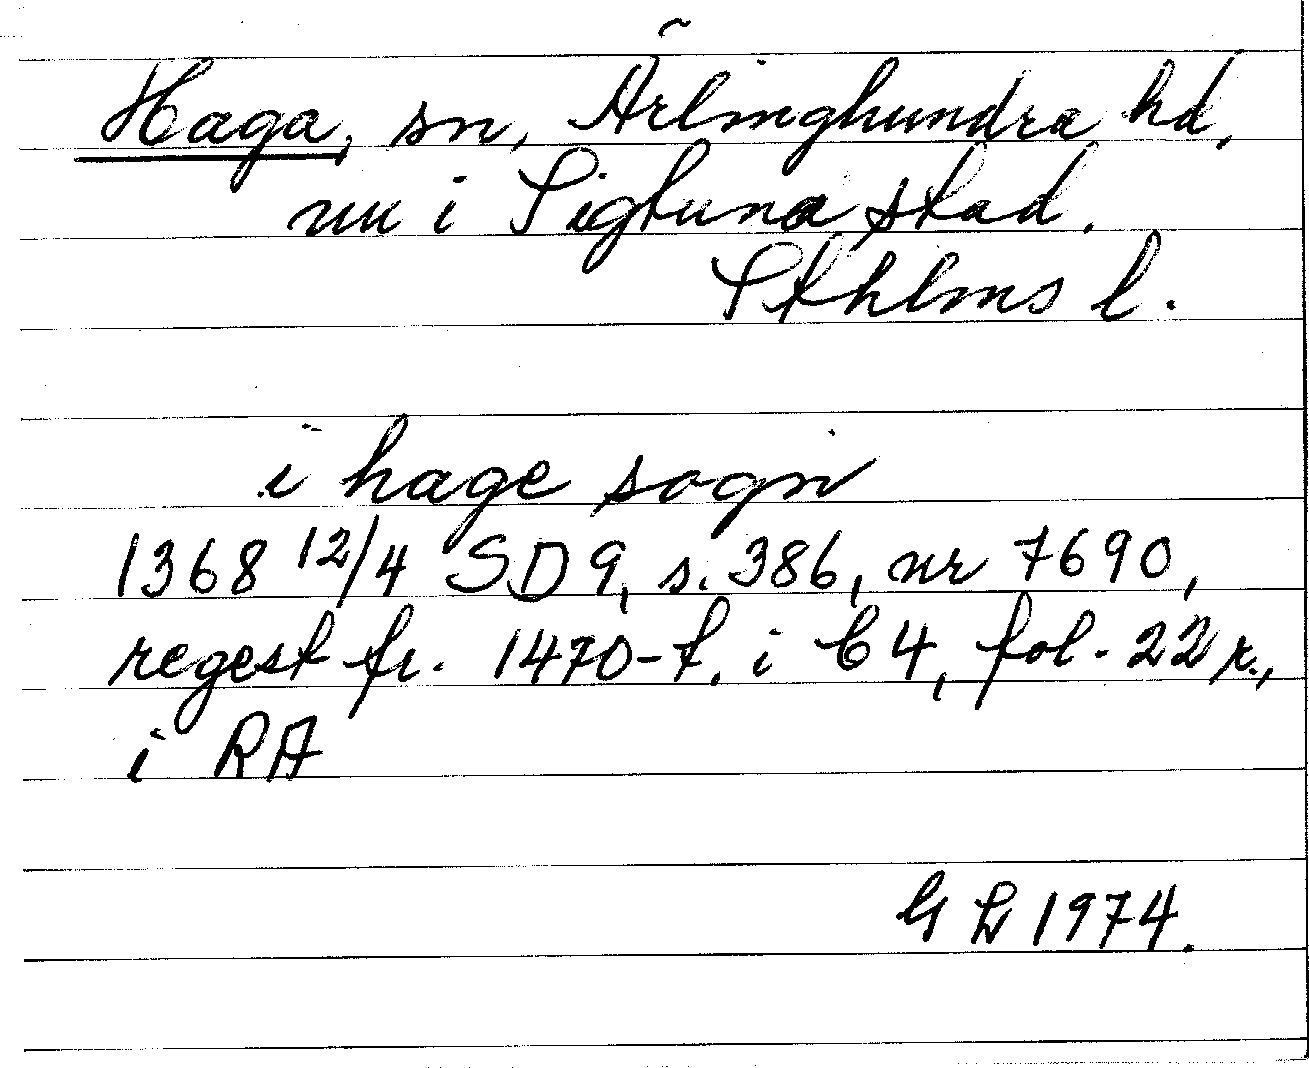 Haga, sn, Ärlinghundra hd,
nu i Sigtuna stad.
Sthlms l.
i hage sogn
1368 12/4 SD 9, s. 386, nr 7690,
regest fr. 1470-t. i C 4, fol. 22 r.,
i RA
1974.